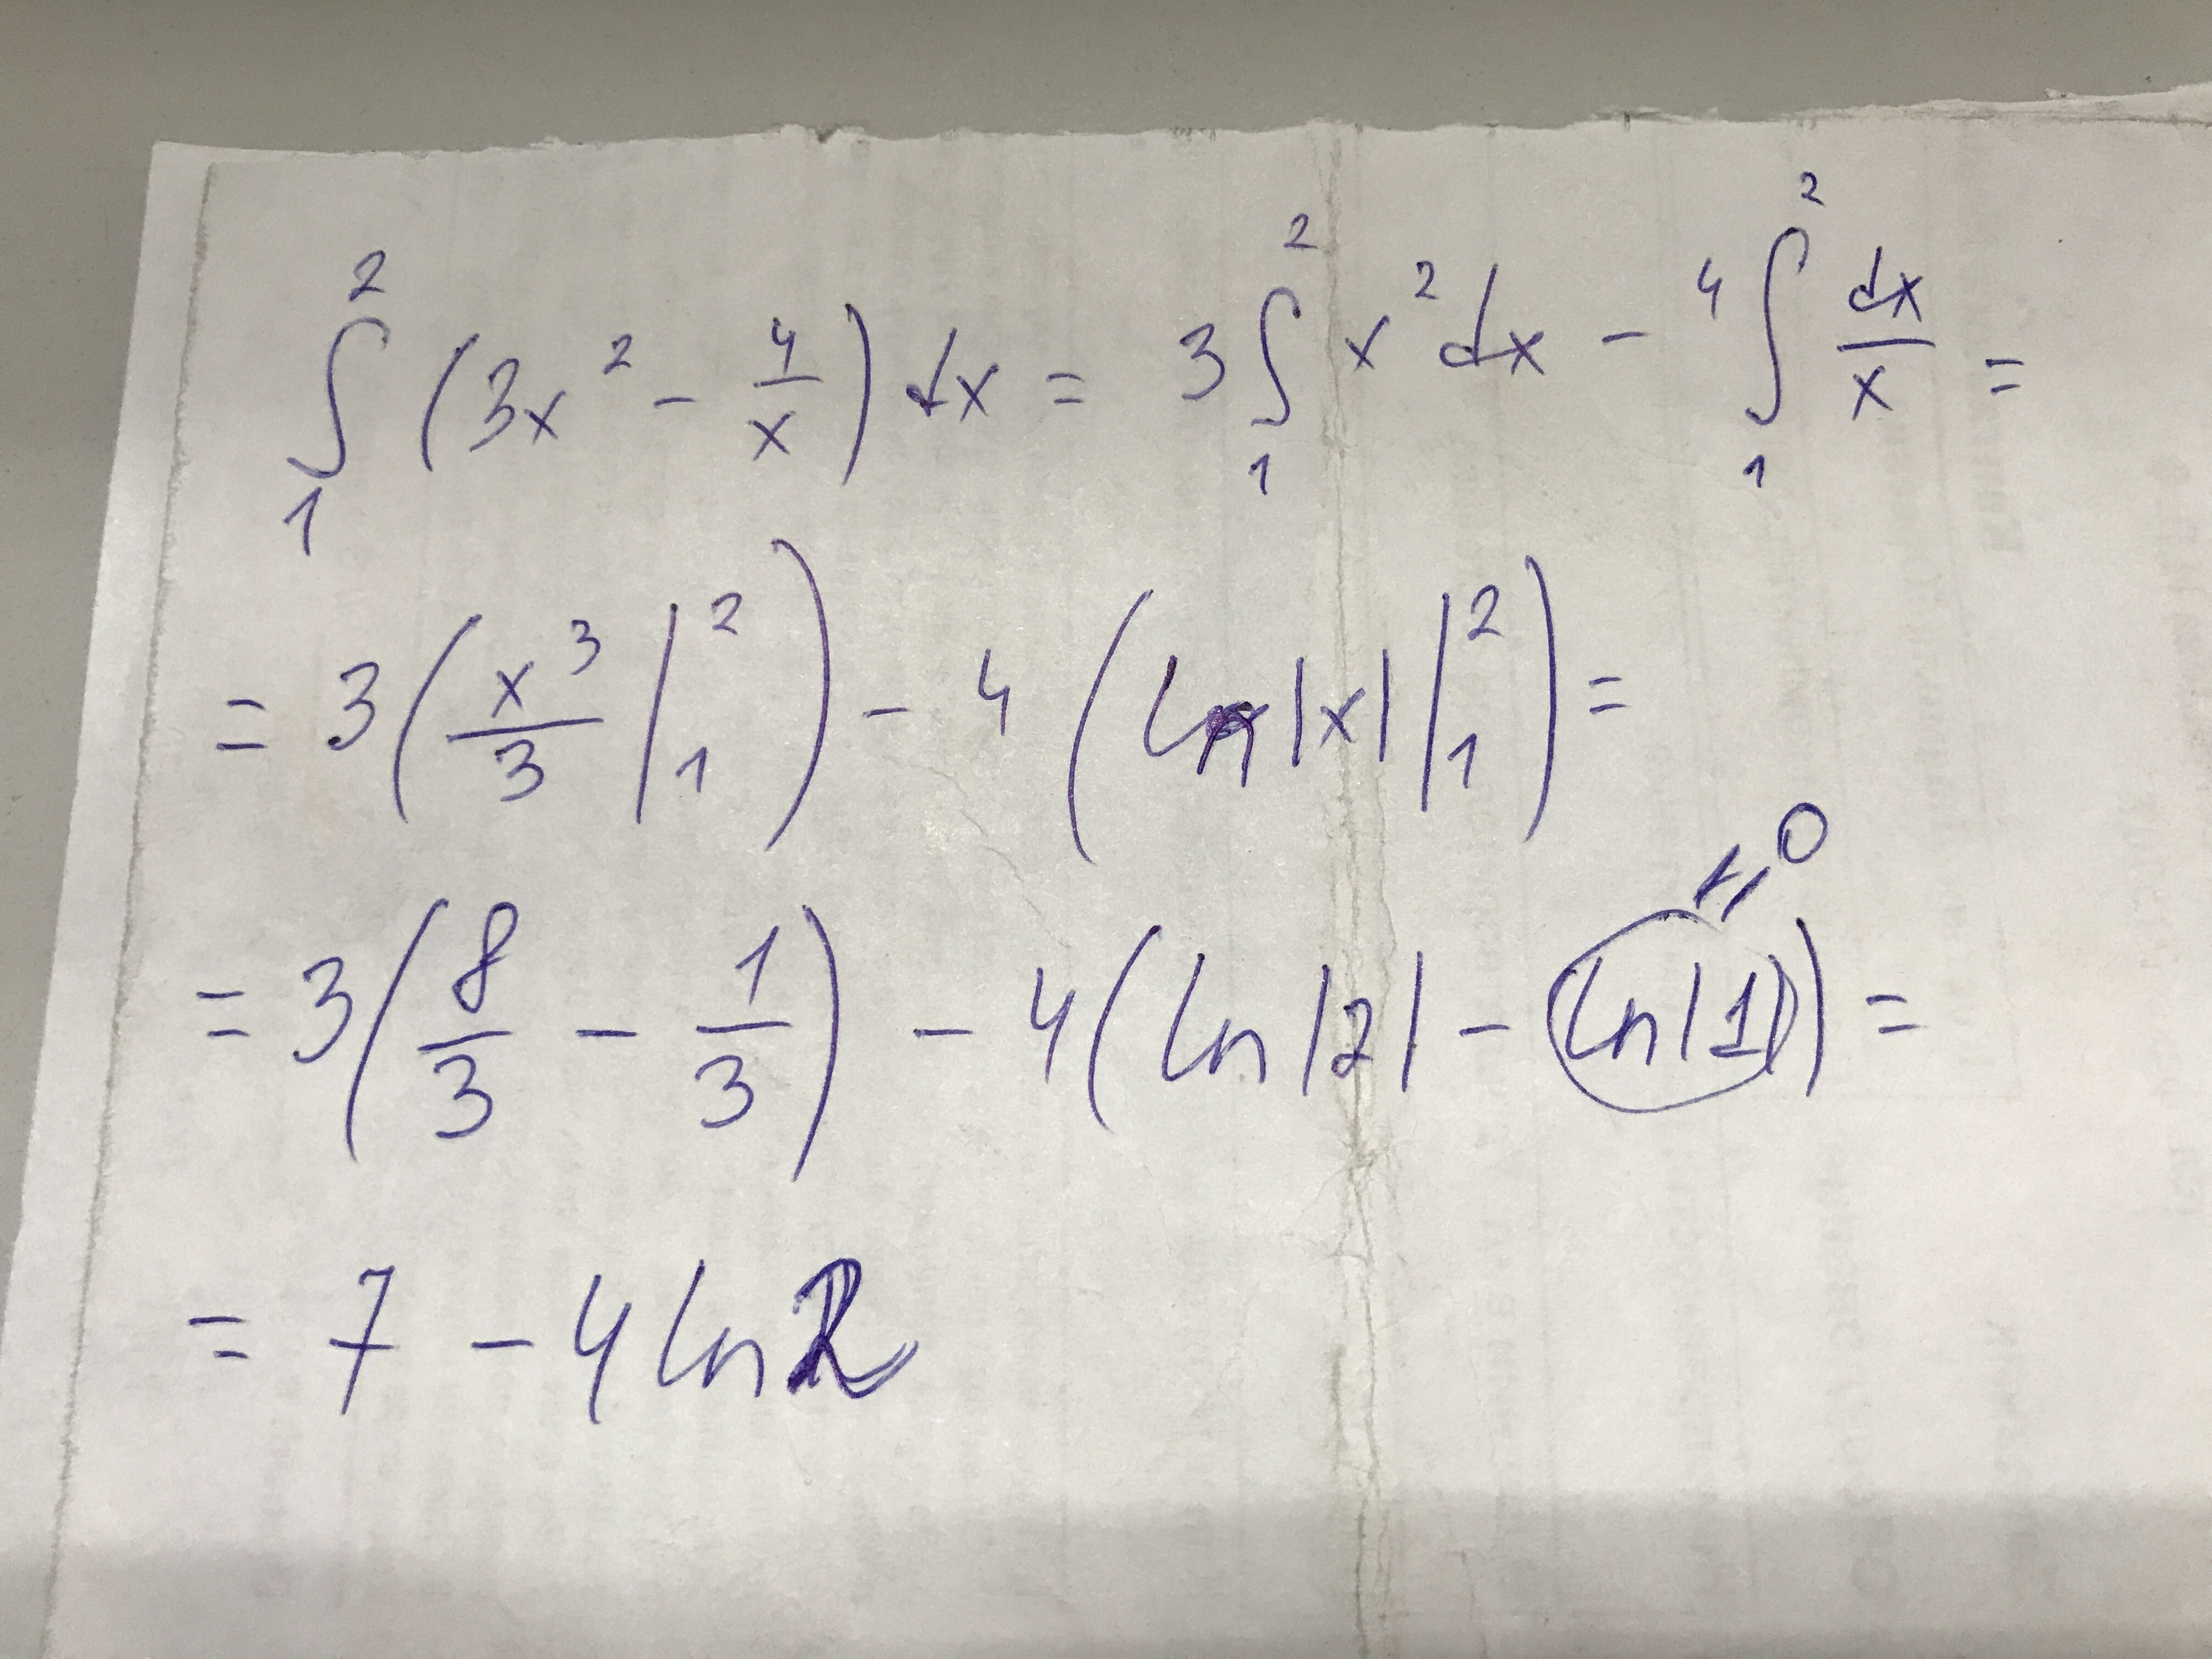 ∫₁² (3x² - 4/x) dx = 3 ∫₁² x² dx - 4 ∫₁² dx/x =
= 3 (x³/3 |₁²) - 4 (ln |x| |₁²) =
= 3 (8/3 - 1/3) - 4 (ln |2| - ln |1|) =
= 0
= 7 - 4 ln 2